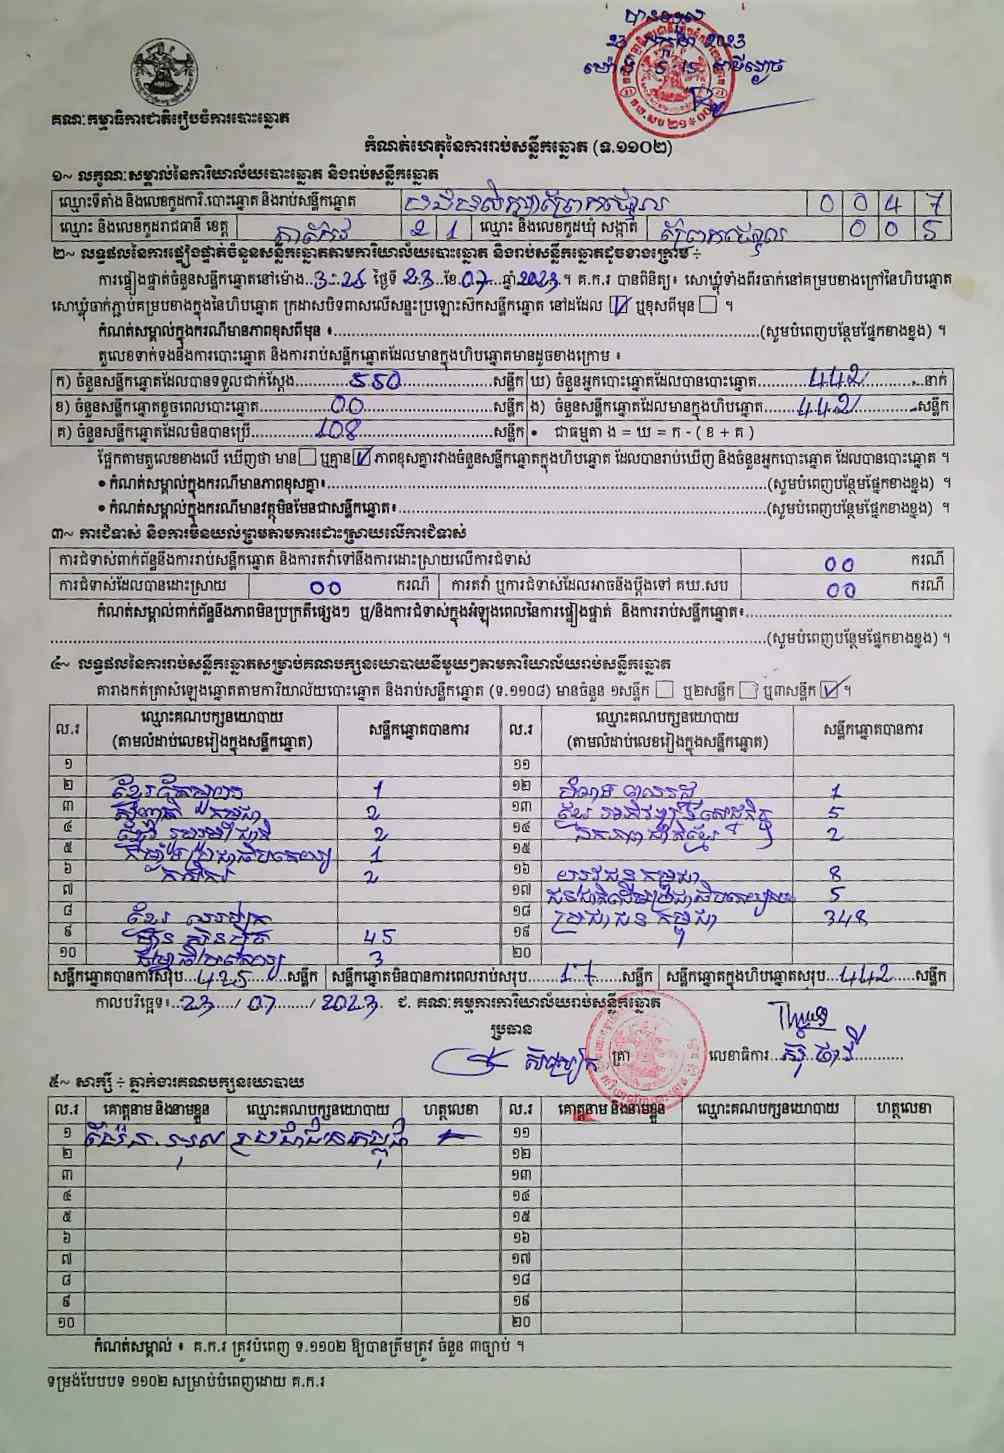 បានទទួល
23 កក្កដា 2023
គណៈកម្មាធិការជាតិរៀបចំការបោះឆ្នោត
កំណត់ហេតុនៃការរាប់សន្លឹកឆ្នោត (ទ.១១០២)
១~ លក្ខណៈសម្គាល់នៃការិយាល័យបោះឆ្នោត និងរាប់សន្លឹកឆ្នោត
ឈ្មោះទីតាំង និងលេខកូដការិ.បោះឆ្នោត និងរាប់សន្លឹកឆ្នោត 0 0 4 7
ឈ្មោះ និងលេខកូដរាជធានី ខេត្ត តាកែវ 2 1 ឈ្មោះ និងលេខកូដឃុំ សង្កាត់ 0 0 5
២~ លទ្ធផលនៃការផ្ទៀងផ្ទាត់ចំនួនសន្លឹកឆ្នោតតាមការិយាល័យបោះឆ្នោត និងរាប់សន្លឹកឆ្នោតដូចខាងក្រោម ÷
ការផ្ទៀងផ្ទាត់ចំនួនសន្លឹកឆ្នោតនៅម៉ោង..3:25 ថ្ងៃទី 23 ខែ 07 ឆ្នាំ 2023 ។ គ.ក.រ បានពិនិត្យ៖ សោឃ្លុំទាំងពីរចាក់នៅគម្របខាងក្រៅនៃហិបឆ្នោត
សោឃ្លុំចាក់ភ្ជាប់គម្របខាងក្នុងនៃហិបឆ្នោត ក្រដាសបិទពាសលើសន្ទះប្រឡោះស៊កសន្លឹកឆ្នោត នៅដដែល ☑ ឬខុសពីមុន ☐ ។
កំណត់សម្គាល់ក្នុងករណីមានភាពខុសពីមុន ៖ (សូមបំពេញបន្ថែមផ្នែកខាងខ្នង) ។
តួលេខទាក់ទងនឹងការបោះឆ្នោត និងការរាប់សន្លឹកឆ្នោតដែលមានក្នុងហិបឆ្នោតមានដូចខាងក្រោម ៖
ក) ចំនួនសន្លឹកឆ្នោតដែលបានទទួលជាក់ស្តែង 550 សន្លឹក ឃ) ចំនួនអ្នកបោះឆ្នោតដែលបានបោះឆ្នោត 442 នាក់
ខ) ចំនួនសន្លឹកឆ្នោតខូចពេលបោះឆ្នោត 00 សន្លឹក ង) ចំនួនសន្លឹកឆ្នោតដែលមានក្នុងហិបឆ្នោត 442 សន្លឹក
គ) ចំនួនសន្លឹកឆ្នោតដែលមិនបានប្រើ 108 សន្លឹក • ជាធម្មតា ង = ឃ = ក - ( ខ + គ )
ផ្អែកតាមតួលេខខាងលើ ឃើញថា មាន ☐ ឬគ្មាន ☑ ភាពខុសគ្នារវាងចំនួនសន្លឹកឆ្នោតក្នុងហិបឆ្នោត ដែលបានរាប់ឃើញ និងចំនួនអ្នកបោះឆ្នោត ដែលបានបោះឆ្នោត ។
• កំណត់សម្គាល់ក្នុងករណីមានភាពខុសគ្នា៖ (សូមបំពេញបន្ថែមផ្នែកខាងខ្នង) ។
• កំណត់សម្គាល់ក្នុងករណីមានវត្ថុមិនមែនជាសន្លឹកឆ្នោត៖ (សូមបំពេញបន្ថែមផ្នែកខាងខ្នង) ។
៣~ ការជំទាស់ និងការមិនយល់ព្រមតាមការដោះស្រាយលើការជំទាស់
ការជំទាស់ពាក់ព័ន្ធនឹងការរាប់សន្លឹកឆ្នោត និងការតវ៉ាទៅនឹងការដោះស្រាយលើការជំទាស់ 00 ករណី
ការជំទាស់ដែលបានដោះស្រាយ 00 ករណី ការតវ៉ា ឬការជំទាស់ដែលអាចនឹងប្តឹងទៅ គឃ.សប 00 ករណី
កំណត់សម្គាល់ពាក់ព័ន្ធនឹងភាពមិនប្រក្រតីផ្សេងៗ ឬ/និងការជំទាស់ក្នុងអំឡុងពេលនៃការផ្ទៀងផ្ទាត់ និងការរាប់សន្លឹកឆ្នោត៖
(សូមបំពេញបន្ថែមផ្នែកខាងខ្នង) ។
៤~ លទ្ធផលនៃការរាប់សន្លឹកឆ្នោតសម្រាប់គណបក្សនយោបាយនីមួយៗតាមការិយាល័យរាប់សន្លឹកឆ្នោត
តារាងកត់ត្រាសំឡេងឆ្នោតតាមការិយាល័យបោះឆ្នោត និងរាប់សន្លឹកឆ្នោត (ទ.១១០៨) មានចំនួន ១សន្លឹក ☐ ឬ២សន្លឹក ☐ ឬ៣សន្លឹក ☑ ។
ល.រ ឈ្មោះគណបក្សនយោបាយ (តាមលំដាប់លេខរៀងក្នុងសន្លឹកឆ្នោត) សន្លឹកឆ្នោតបានការ ល.រ ឈ្មោះគណបក្សនយោបាយ (តាមលំដាប់លេខរៀងក្នុងសន្លឹកឆ្នោត) សន្លឹកឆ្នោតបានការ
១ ១១
២ 1 ១២ 1
៣ 2 ១៣ 5
៤ 2 ១៤ 2
៥ 1 ១៥
៦ 2 ១៦ យុវជនកម្ពុជា 8
៧ ១៧ 5
៨ ១៨ ប្រជាជនកម្ពុជា 348
៩ 45 ១៩
១០ 3 ២០
សន្លឹកឆ្នោតបានការសរុប 425 សន្លឹក សន្លឹកឆ្នោតមិនបានការពេលរាប់សរុប 17 សន្លឹក សន្លឹកឆ្នោតក្នុងហិបឆ្នោតសរុប 442 សន្លឹក
កាលបរិច្ឆេទ៖ 23 / 07 / 2023 ជ. គណៈកម្មការការិយាល័យរាប់សន្លឹកឆ្នោត
ប្រធាន
ត្រា លេខាធិការ
៥~ សាក្សី ÷ ភ្នាក់ងារគណបក្សនយោបាយ
ល.រ គោត្តនាម និងនាមខ្លួន ឈ្មោះគណបក្សនយោបាយ ហត្ថលេខា ល.រ គោត្តនាម និងនាមខ្លួន ឈ្មោះគណបក្សនយោបាយ ហត្ថលេខា
១ ប្រជាជនកម្ពុជា ១១
២ ១២
៣ ១៣
៤ ១៤
៥ ១៥
៦ ១៦
៧ ១៧
៨ ១៨
៩ ១៩
១០ ២០
កំណត់សម្គាល់ ៖ គ.ក.រ ត្រូវបំពេញ ទ.១១០២ ឱ្យបានត្រឹមត្រូវ ចំនួន ៣ច្បាប់ ។
ទម្រង់បែបបទ ១១០២ សម្រាប់បំពេញដោយ គ.ក.រ